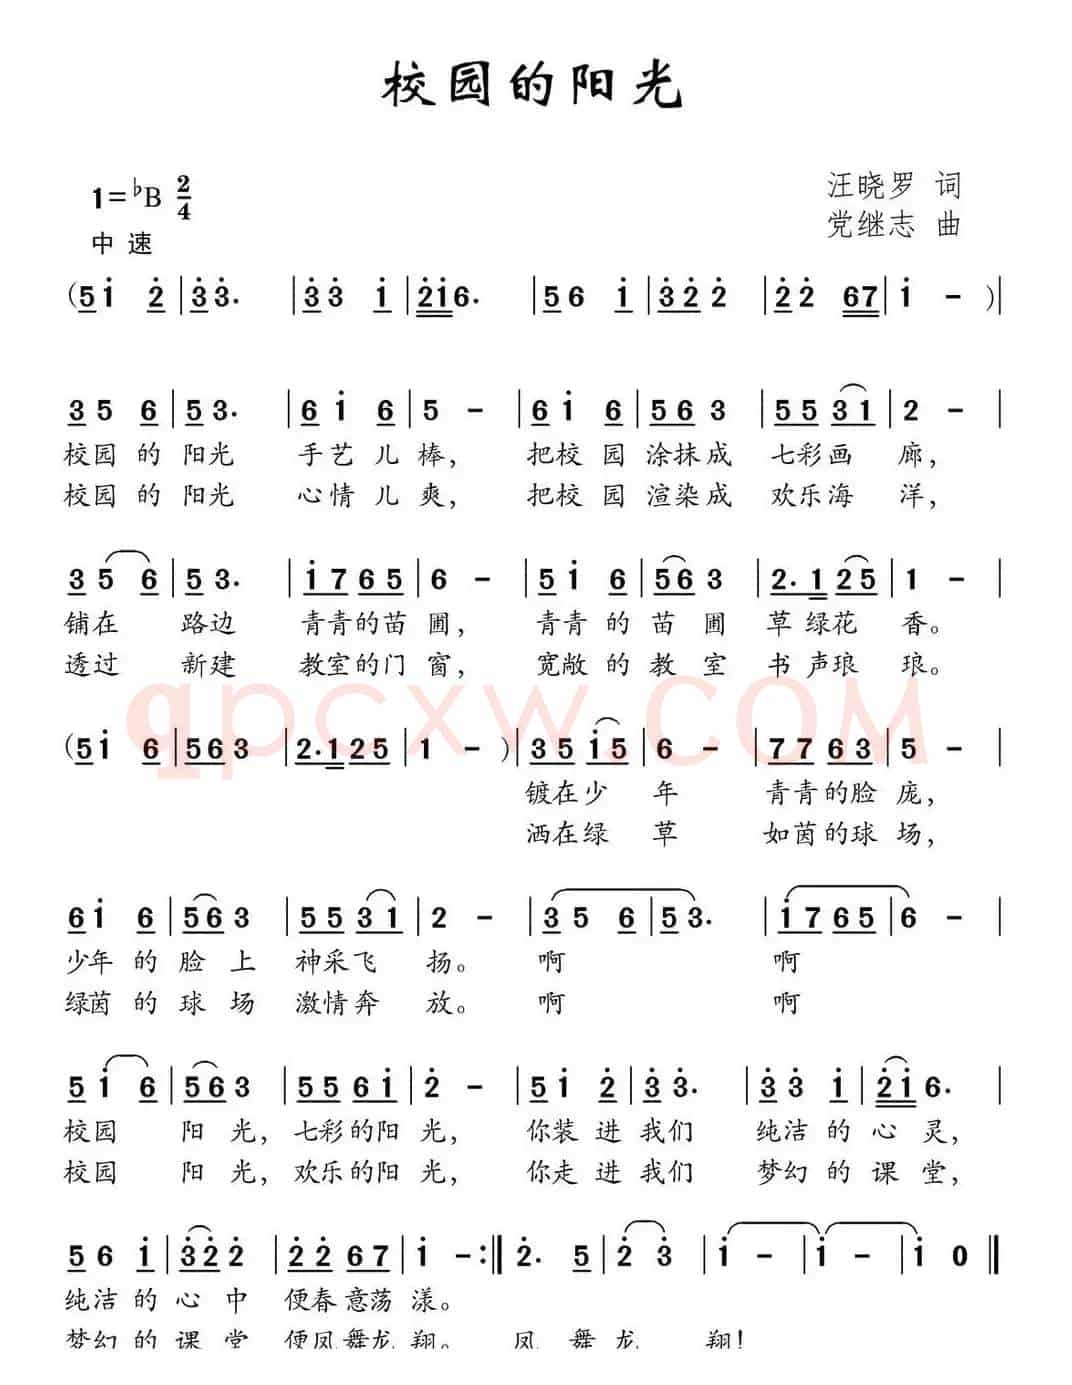 校园的阳光
1=♭B 2/4
汪晓罗 词
中速
党继志 曲
(5i 2|33. |33 i|2i6. |56 i|322|22 67|i -)|
35 6|53. |6i 6|5 -|6i 6|563|5531|2 -|
校园的阳光 手艺儿棒，把校园涂抹成七彩画廊，
校园的阳光 心情儿爽，把校园渲染成欢乐海洋，
35 6|53. |i765|6 -|5i 6|563|2.125|1 -|
铺在路边 青青的苗圃，青青的苗圃草绿花香。
透过新建 教室的门窗，宽敞的教室书声琅琅。
qpcxw.COM
(5i 6|563|2.125|1 -)|35i5|6 -|7763|5 -|
镀在少年 青青的脸庞，
洒在绿草 如茵的球场，
6i 6|563|5531|2 -|35 6|53. |i765|6 -|
少年的脸上神采飞扬。啊 啊
绿茵的球场激情奔放。啊 啊
5i 6|563|556i|2 -|5i 2|33. |33 i|2i6. |
校园阳光，七彩的阳光，你装进我们 纯洁的心灵，
校园阳光，欢乐的阳光，你走进我们 梦幻的课堂，
56 i|322|2267|i -:‖2. 5|2 3|i -|i -|i 0‖
纯洁的心中便春意荡漾。
梦幻的课堂便凤舞龙翔。凤舞龙翔！